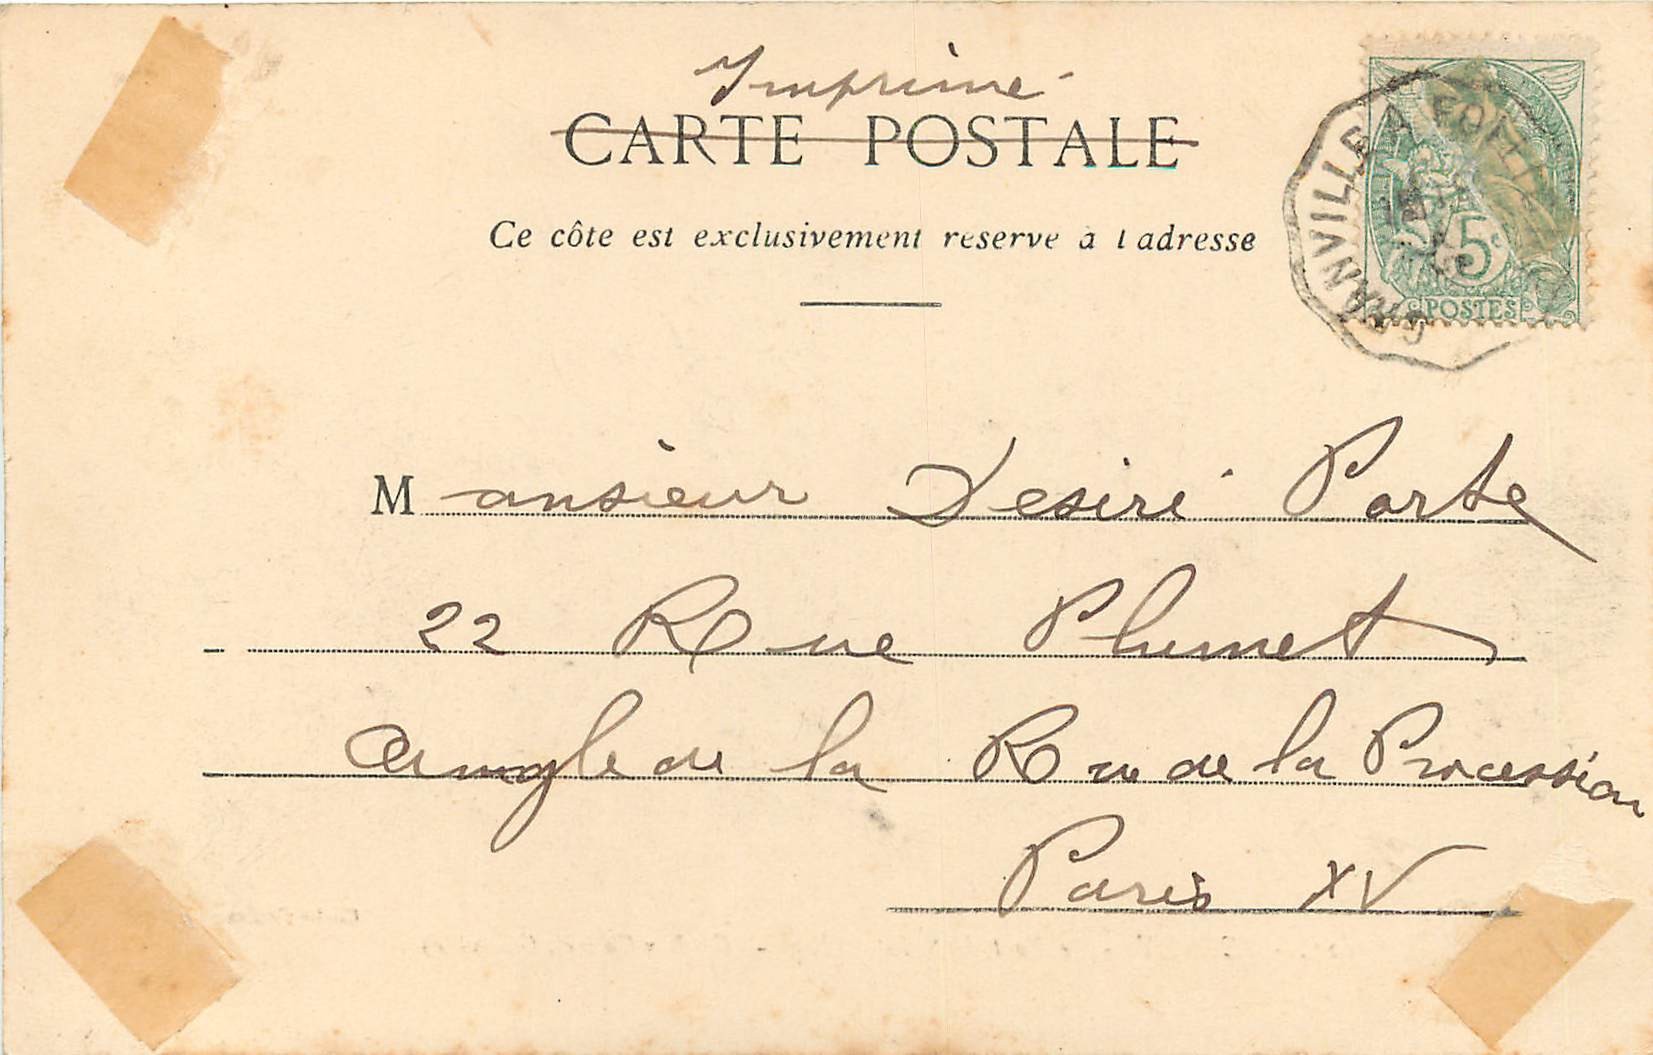 Imprimé
CARTE POSTALE
Ce côte est exclusivement reserve à l adresse
5c
POSTES
GRANVILLE A
Monsieur Desiré Porte
22 Rue Plumet
Angle de la Rue de la Procession
Paris XV